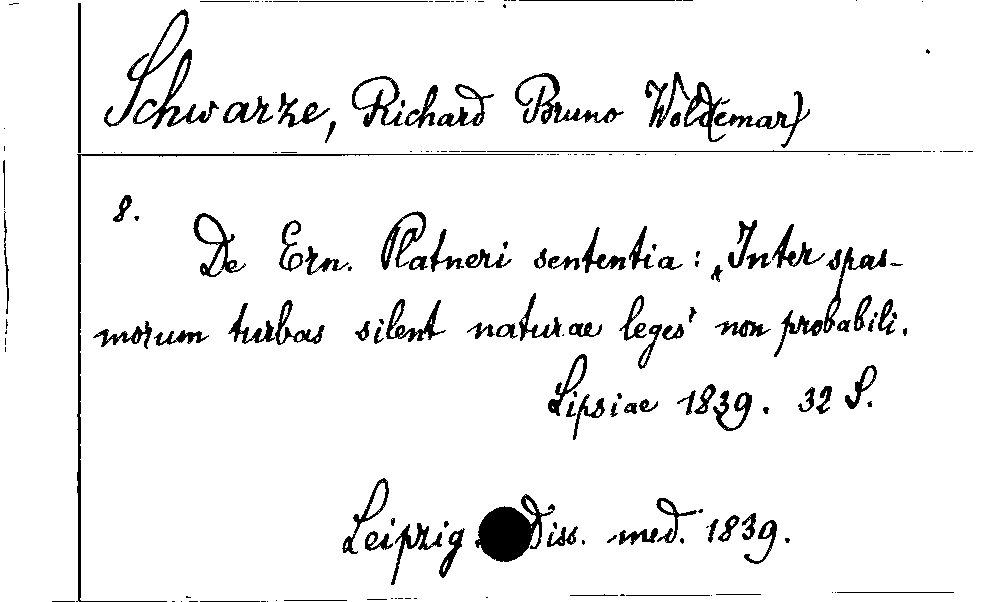 Schwarze, Richard Bruno Wold(emar)
8.
De Ern. Platneri sententia: „Inter spas-
morum turbas silent naturae leges" non probabili.
Lipsiae 1839. 32 S.
Leipzig. Diss. med. 1839.